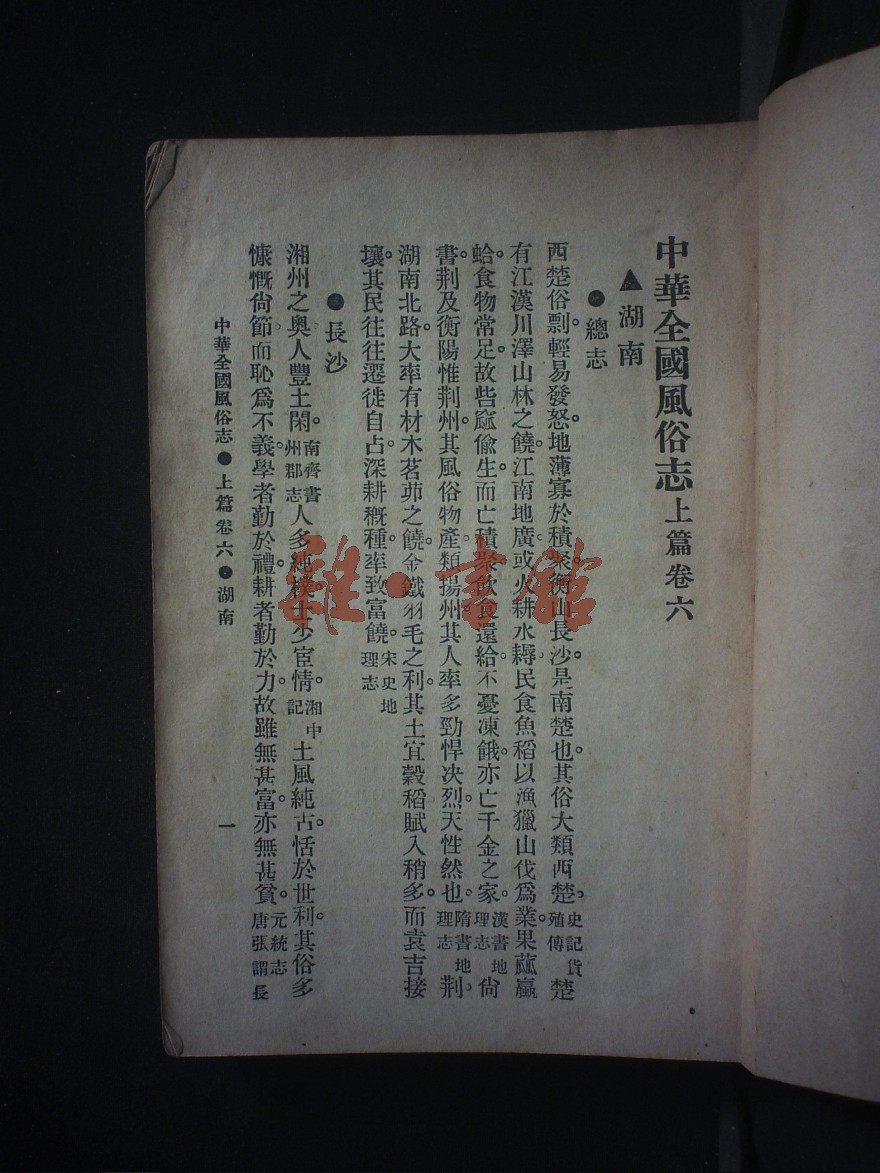 中華全國風俗志上篇卷六
▲湖南
●總志
西楚俗剽輕易發怒。地薄寡於積聚。衡山長沙。是南楚也。其俗大類西楚。史記貨殖傳楚
有江漢川澤山林之饒。江南地廣。或火耕水耨。民食魚稻。以漁獵山伐爲業。果蓏蠃
蛤。食物常足。故呰窳偸生。而亡積聚。飲食還給。不憂凍餓。亦亡千金之家。漢書地理志尙
書。荆及衡陽惟荆州。其風俗物產類揚州。其人率多勁悍决烈。天性然也。隋書地理志荆
湖南北路。大率有材木茗茆之饒。金鐵羽毛之利。其土宜穀稻。賦入稍多。而袁吉接
壤。其民往往遷徙自占。深耕概種。率致富饒。宋史地理志
●長沙
湘州之奥。人豐土閑。南齊書州郡志人多純樸。士少宦情。湘中記土風純古。恬於世利。其俗多
慷慨尙節。而恥爲不義。學者勤於禮。耕者勤於力。故雖無甚富。亦無甚貧。元統志唐張謂長
中華全國風俗志●上篇卷六●湖南
一
雜·書館